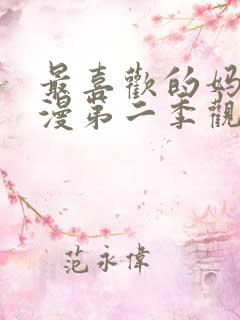 最喜歡的妈
漫第二季觀
范永偉